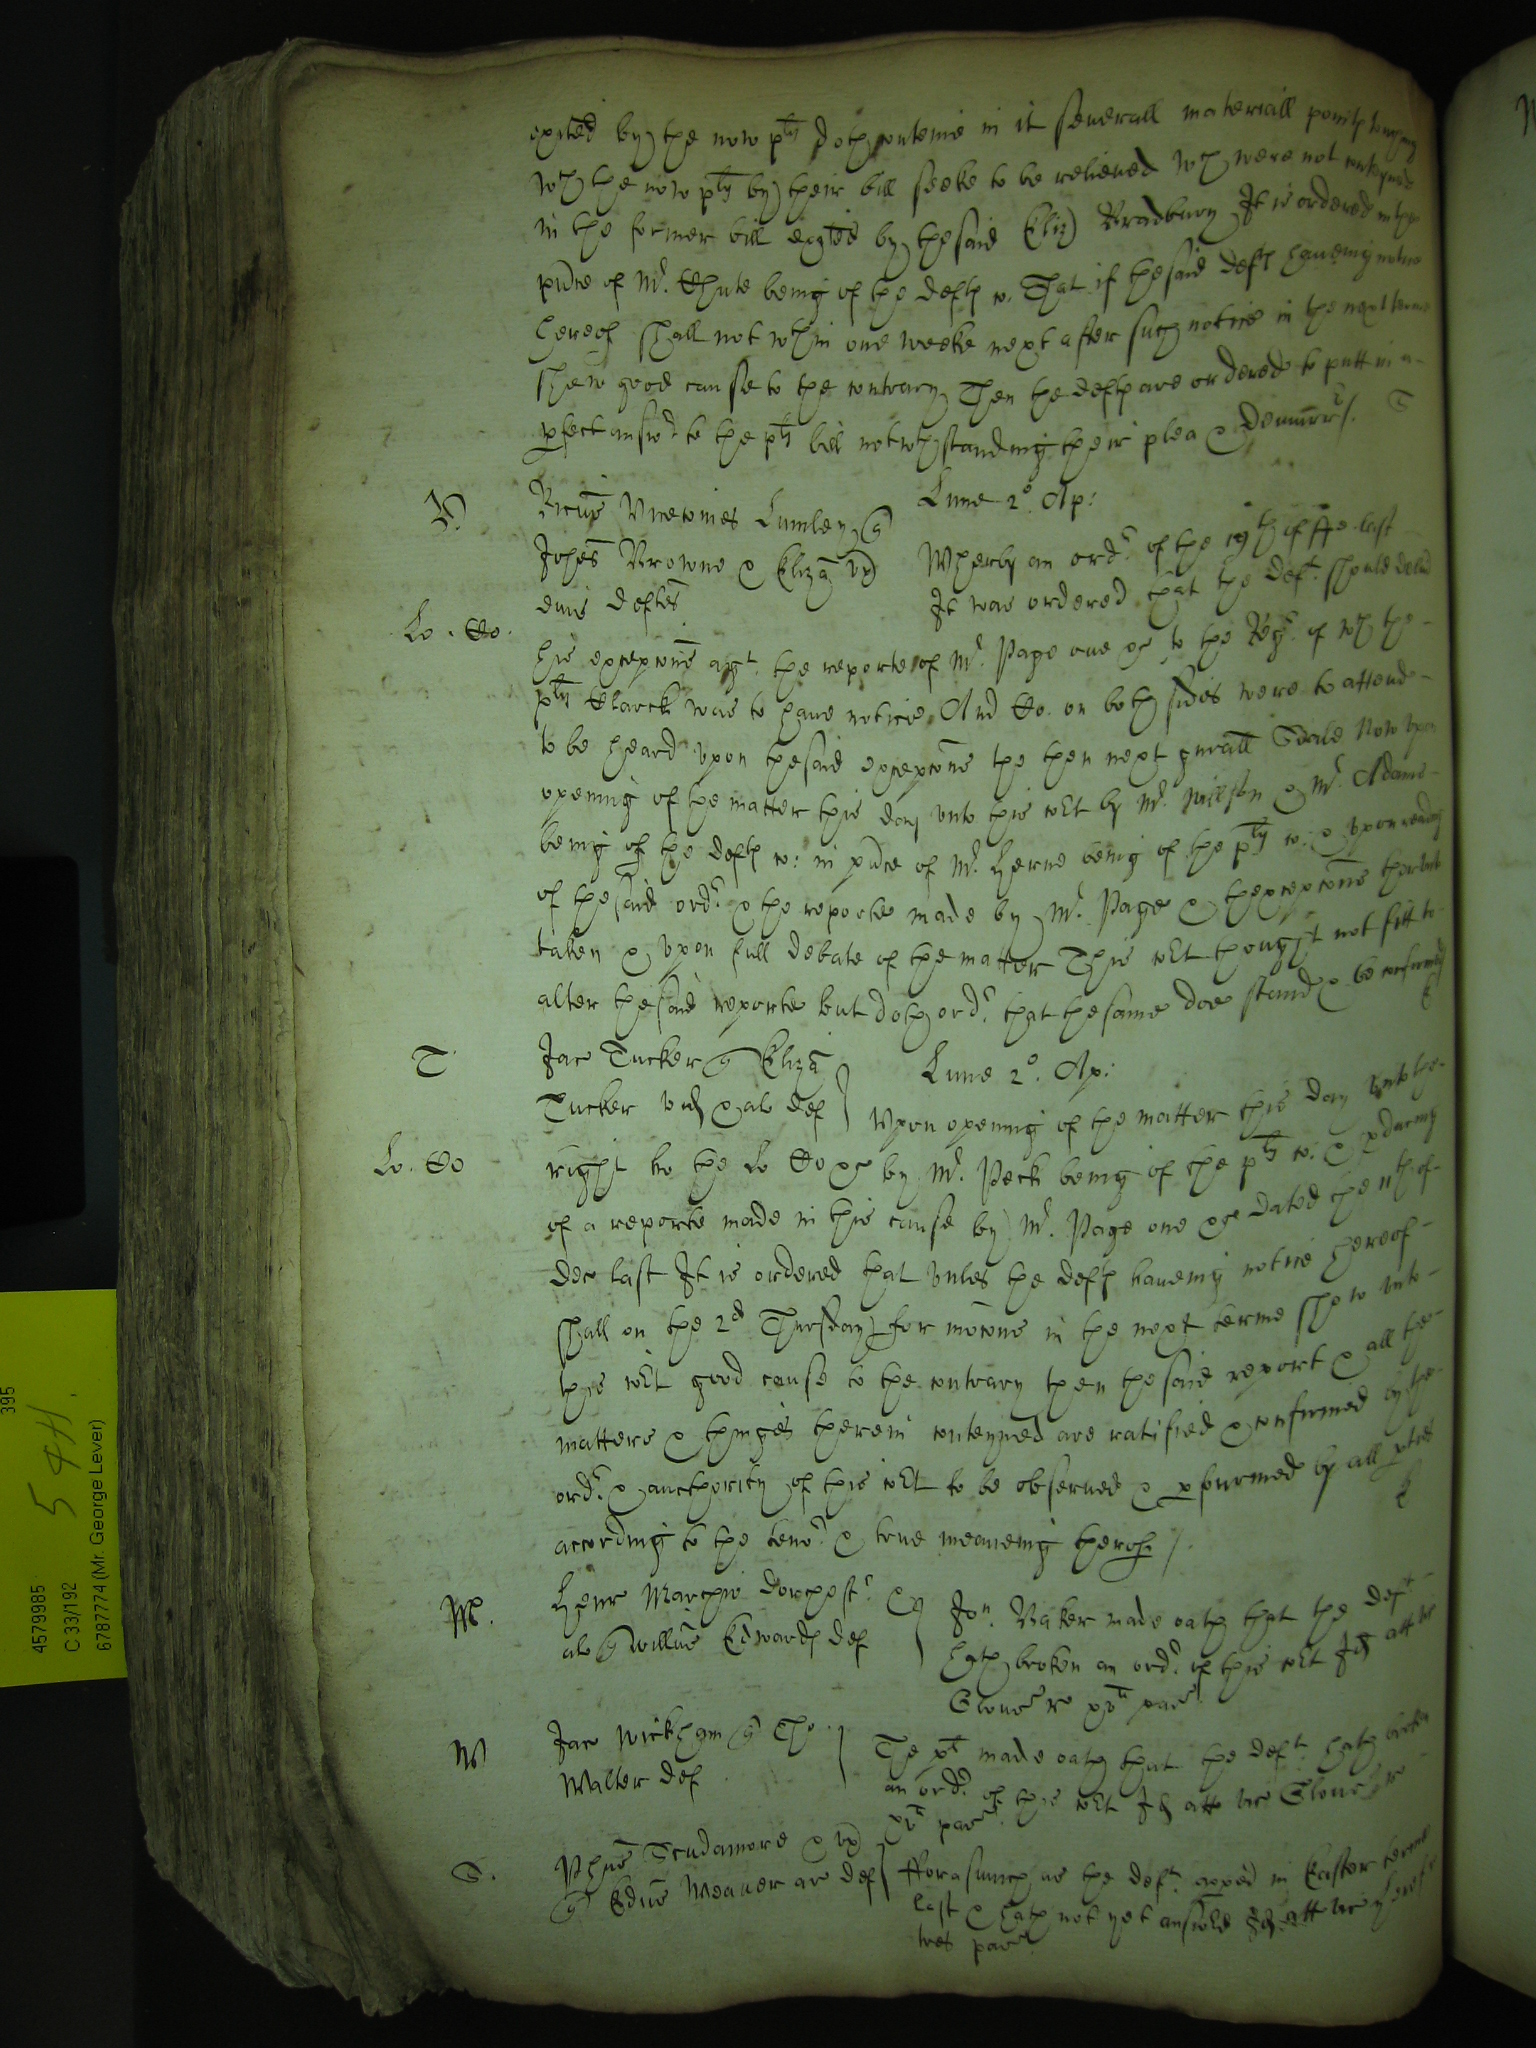 exited by the now plts doth conteine in it severall materiall points
wch the now plts by their bill seeke to be releived wch were not conteyned
in the former bill exited by the said Eliz Bradbury It is ordered in the
pnce of Mr. Chute being of the defts co. That if the said defts haveing notice
hereof shall not wthin one weeke next after such notice in the next terme
shew good cause to the contrary Then the defts are ordered to putt in a
pfect answr to the plts bill notwthstanding their plea & demurrr /.
Lune 2o Ap:
Ricus Vicecomes Lumley
Johes Browne & Eliza ux
eius deftes
Wherby an ordr of the 19th of Fe. last
It was ordered that the deft. should
Lo. Co.
his excepcons agt. the reporte of Mr. Page one &c to the Regr. of wch the
plts Clarck was to have notice And Co. on both sides were to attend
to be heard upon the said excepcons the then next gnrall Seale Now upon
opening of the matter this day unto this Cot by Mr. Willson & Mr. Adams
being of the defts co: in pnce of Mr. Herne being of the plts co. & upon reading
of the said ordr & the reporte made by Mr. Page & thexcepcons therunto
taken & upon full debate of the matter This Cot thought not fitt to
alter the said reporte but doth ordr that the same doe stand & be confirmed
T
Jac Tucker Eliza
Tucker vid & al def
Lune 2o. Ap:
Upon opening of the matter this day unto the
Lo. Co
right ho the Lo Co &c by Mr. Peck being of the plts co. & reading
of a reporte made in this cause by Mr. Page one &c dated the 11th of
Dec last It is ordered that unles the defts haveing notice hereof
shall on the 2d Thursday for mocons in the next terme shew unto
this Cot good cause to the contrary then the said report & all the
matters & things therein conteyned are ratified & confirmed by the
ordr & aucthority of this Cot to be observed & pformed by all pties
according to the tenor & true meaneing therof /.
M.
Henr Marchio Dorchestr &
al Willus Edwards def
Jon. Baker made oath that the deft
hath broken an ordr. of this Cot Id att vic
Glouc re
W
Jac Wickham Tho.
Walter def
The plt made oath that the deft. hath broken
an ordr. of this Cot Id att vic Glouc re
S.
Phus Scudamore & ux
Edus Weaver ar def
Forasmuch as the deft. apped in Easter terme
last & hath not yet answred Id att vic heref
tres
4579985
C 33/192
6787774 (Mr. George Lever)
395